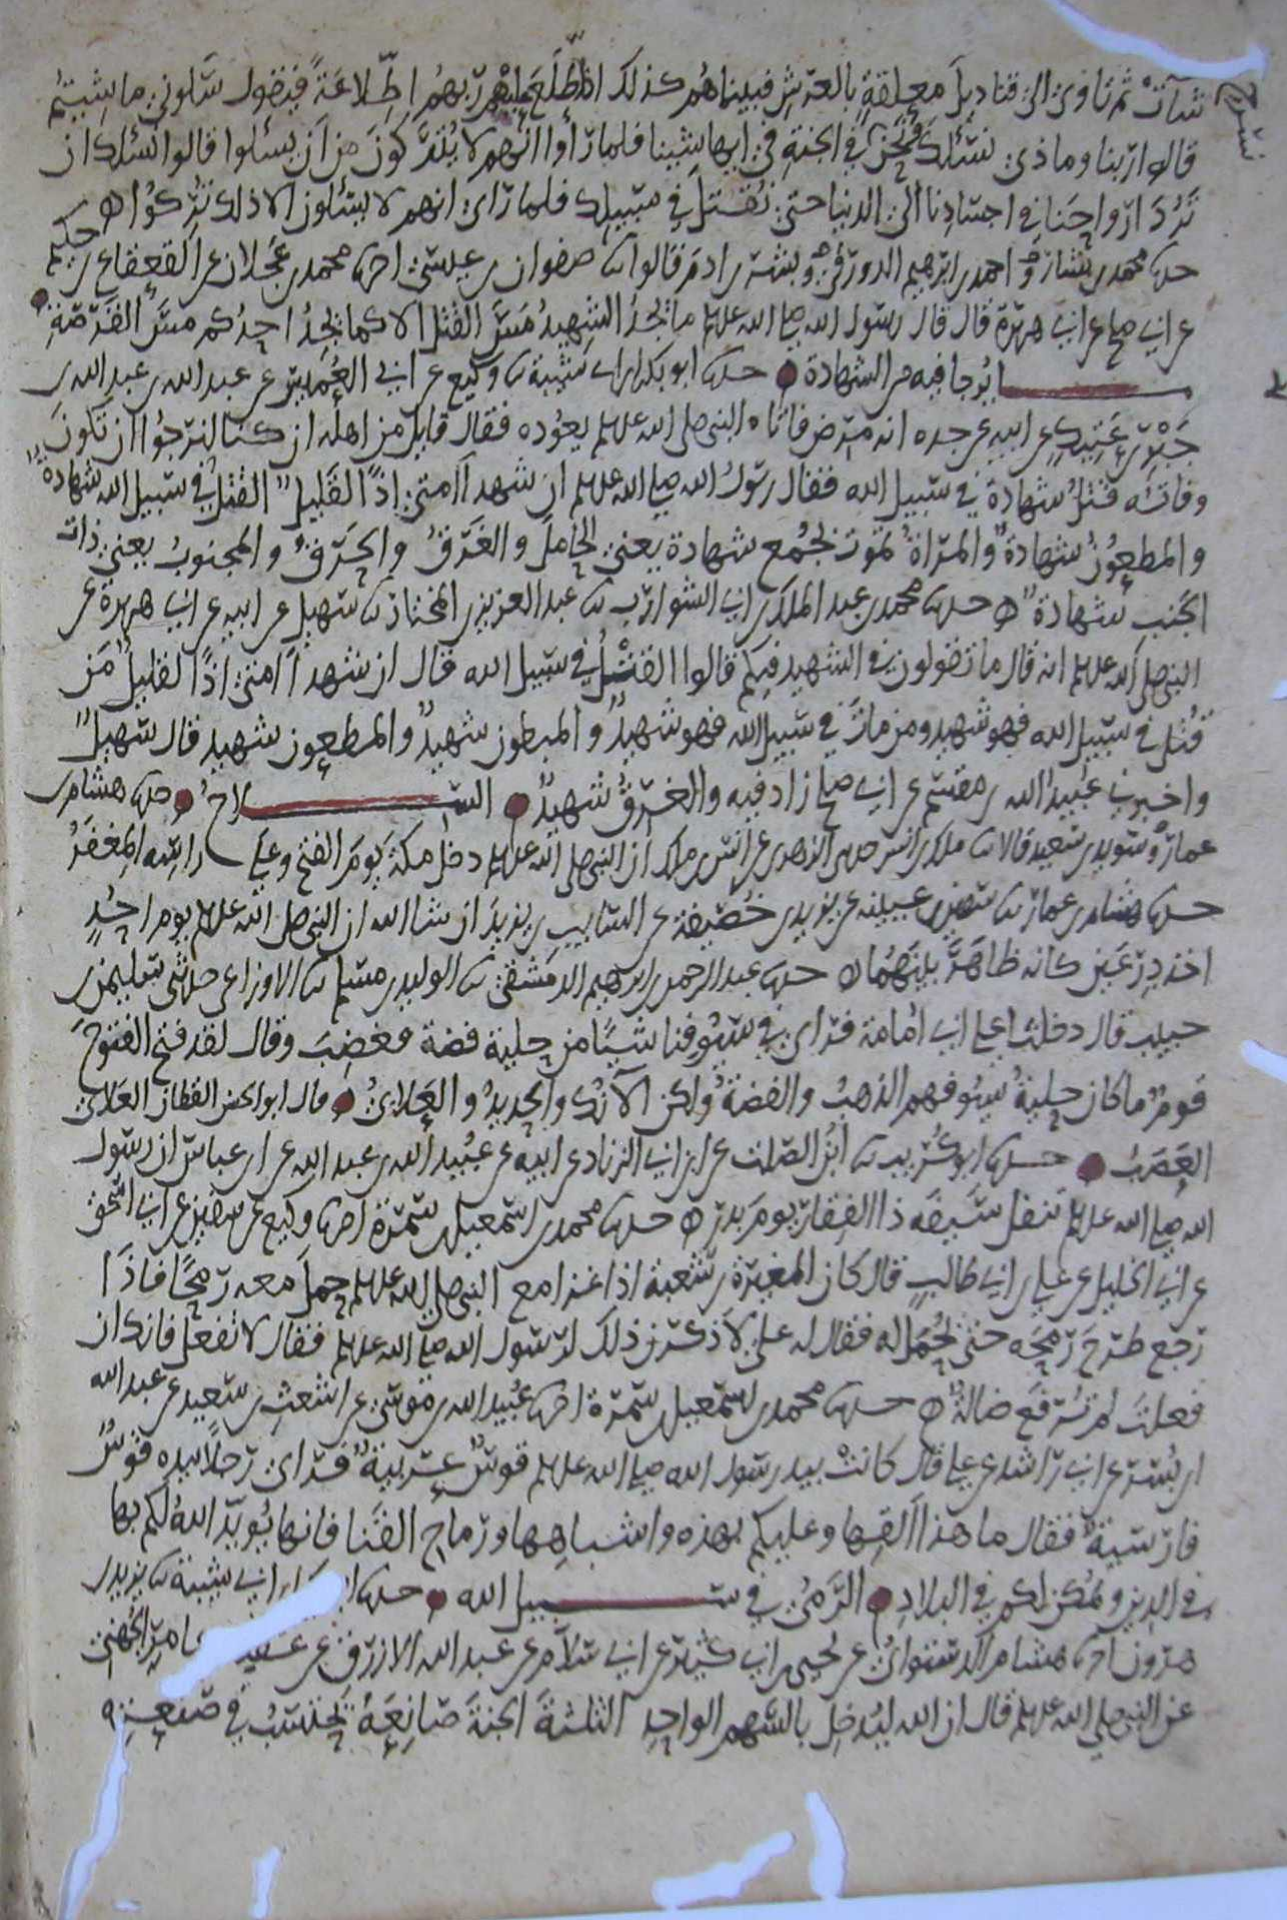 شآت ثم تاوي الى قناديل معلقة بالعرش فبيناهم كذلك اذ اطّلع عليهم ربهم اطّلاعة فيقول سلوني ما شيتم
قالوا ربنا وما ذى نسئلك ونحن في الجنة في ايها شينا فلما رأوا انهم لا يتركون من ان يسئلوا قالوا نسئلك ان
ترد ارواحنا في اجسادنا الى الدنيا حتى نقتل في سبيلك فلما راى انهم لا يسئلون الا ذلك تركوا ه
حدثنا محمد بن بشار واحمد بن ابرهيم الدورقي وبشر بن ادم قالوا ثنا صفوان بن عيسى اخبرنا محمد بن عجلان عن القعقاع بن حكيم
عن ابي صالح عن ابي هريرة قال قال رسول الله صلى الله عليه وسلم ما يجد الشهيد مس القتل الا كما يجد احدكم مس القرصة
ما يرجا فيه من الشهادة حدثنا ابو بكر بن ابي شيبة ثنا وكيع عن ابي العميس عن عبد الله بن عبد الله بن
جبر بن عتيك عن ابيه عن جده انه مرض فاتاه النبي صلى الله عليه وسلم يعوده فقال قايل من اهله ان كنا لنرجوا ان تكون
وفاته قتل شهادة في سبيل الله فقال رسول الله صلى الله عليه وسلم ان شهدآ امتى اذا لقليل القتل في سبيل الله شهادة
والمطعون شهادة والمرأة تموت بجمع شهادة يعني الحامل والغرق والحرق والمجنوب يعني ذات
الجنب شهادة ه حدثنا محمد بن عبد الملك بن ابي الشوارب ثنا عبد العزيز بن المختار ثنا سهيل عن ابيه عن ابي هريرة عن
النبي صلى الله عليه وسلم انه قال ما تقولون في الشهيد فيكم قالوا القتل في سبيل الله قال ان شهدآ امتى اذا لقليل من
قتل في سبيل الله فهو شهيد ومن مات في سبيل الله فهو شهيد والمبطون شهيد والمطعون شهيد قال سهيل
واخبرني عبيد الله بن مقسم عن ابي صالح زاد فيه والغرق شهيد السلاح حدثنا هشام بن
عمار وسويد بن سعيد قالا ثنا ملك بن انس حدثني الزهري عن انس بن ملك ان النبي صلى الله عليه وسلم دخل مكة يوم الفتح وعلى راسه المغفر
حدثنا هشام بن عمار ثنا سفين بن عيينة عن يزيد بن خصيفة عن السايب بن يزيد ان شا الله ان النبي صلى الله عليه وسلم يوم احد
اخذ درعين كانه ظاهر بينهما ه حدثنا عبد الرحمن بن ابرهيم الدمشقي ثنا الوليد بن مسلم ثنا الاوزاعي حدثني سليمن بن
حبيب قال دخلنا على ابي امامة فراى في سيوفنا شيا من حلية فضة فغضب وقال لقد فتح الفتوح
قوم ما كان حلية سيوفهم الذهب والفضة ولكن الآنك والحديد والعلابي قال ابو الحسن القطان العلابي
العصب حدثنا ابو كريب ثنا ابن الصلت عن ابن ابي الزناد عن ابيه عن عبيد الله بن عبد الله عن ابن عباس ان رسول
الله صلى الله عليه وسلم تنفل سيفه ذا الفقار يوم بدر ه حدثنا محمد بن اسمعيل بن سمرة اخبرنا وكيع عن سفين عن ابي اسحق
عن ابي الخليل عن علي بن ابي طالب قال كان المغيرة بن شعبة اذا غزا مع النبي صلى الله عليه وسلم حمل معه رمحا فاذا
رجع طرح رمحه حتى يحمل له فقال له علي لاذكرن ذلك لرسول الله صلى الله عليه وسلم فقال لا تفعل فانك ان
فعلت لم ترفع ضالة ه حدثنا محمد بن اسمعيل بن سمرة اخبرنا عبيد الله بن موسى عن اشعث بن سعيد عن عبد الله
ابن بسر عن ابي راشد عن علي قال كانت بيد رسول الله صلى الله عليه وسلم قوس عربية فراى رجلا بيده قوس
فارسية فقال ما هذا القها وعليكم بهذه واشباهها ورماح القنا فانها يويد الله لكم بها
في الدين ويمكن لكم في البلاد الرمي في سبيل الله حدثنا ابي شيبة ثنا يزيد بن
هرون اخبرنا هشام الدستوائي عن يحيى بن ابي كثير عن ابي سلام عن عبد الله الازرق عن عقبة عامر الجهني
عن النبي صلى الله عليه وسلم قال ان الله ليدخل بالسهم الواحد الثلثة الجنة صانعه يحتسب في صنعته